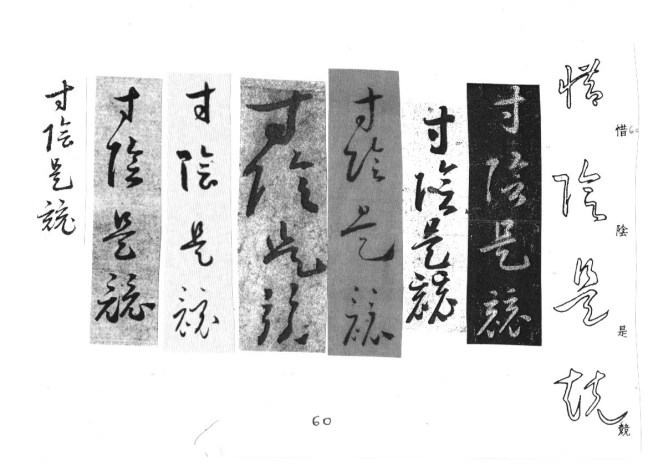 惜60
陰
是
競
惜陰是競
寸陰是競
寸陰是競
寸陰是競
寸陰是競
寸陰是競
寸陰是競
寸陰是競
60